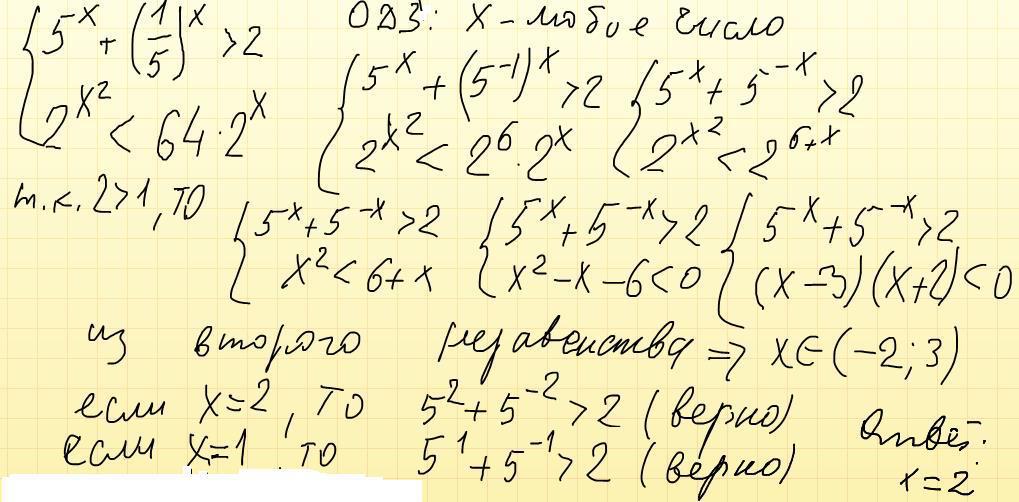 { 5^x + (1/5)^x > 2
2^(x^2) < 64 · 2^x
ОДЗ: x - любое число
{ 5^x + (5^-1)^x > 2
2^(x^2) < 2^6 · 2^x
{ 5^x + 5^-x > 2
2^(x^2) < 2^(6+x)
т.к. 2>1, то
{ 5^x + 5^-x > 2
x^2 < 6 + x
{ 5^x + 5^-x > 2
x^2 - x - 6 < 0
{ 5^x + 5^-x > 2
(x-3)(x+2) < 0
из второго неравенства => x ∈ (-2; 3)
если x=2, то 5^2 + 5^-2 > 2 (верно)
если x=1, то 5^1 + 5^-1 > 2 (верно)
Ответ:
x=2